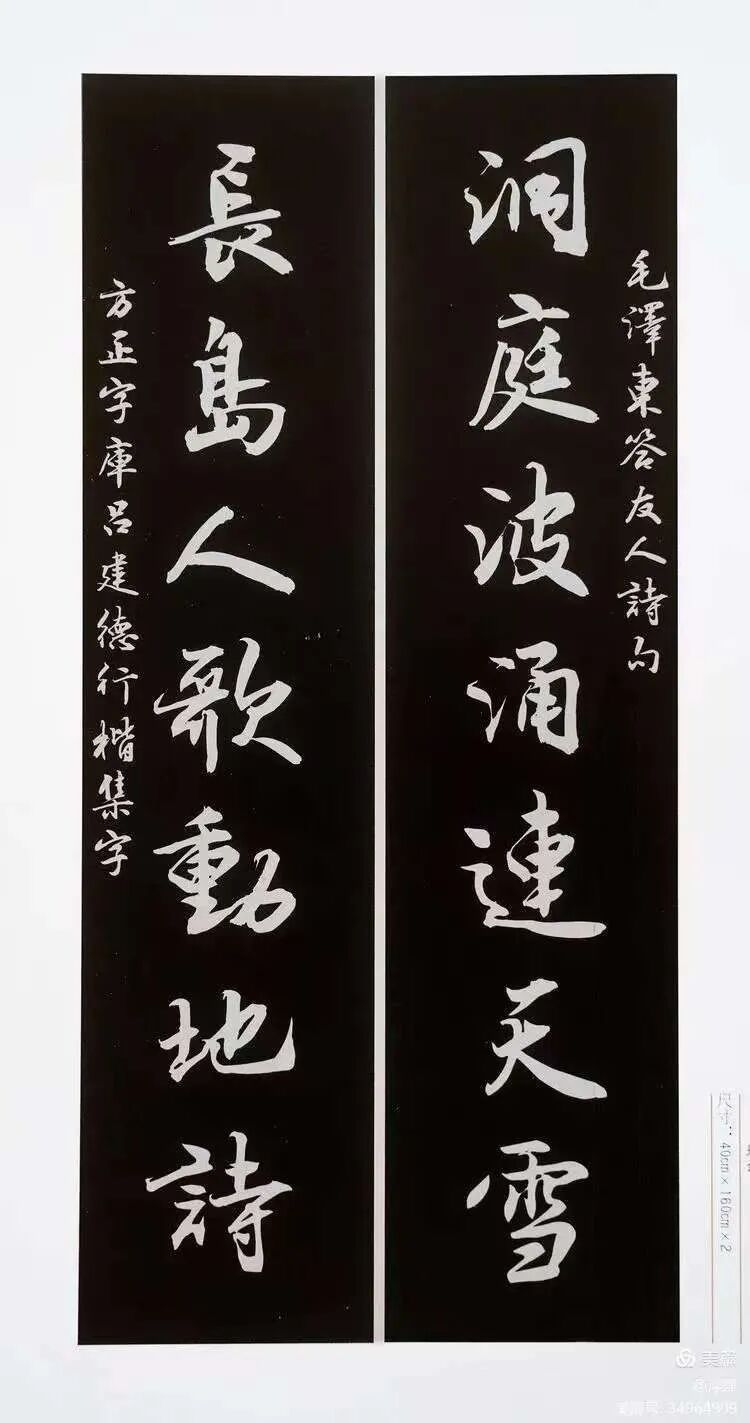 毛澤東答友人詩句
洞庭波涌連天雪
長島人歌動地詩
方正字庫呂建德行楷集字
尺寸：40cm×160cm×2
美篇
34964999